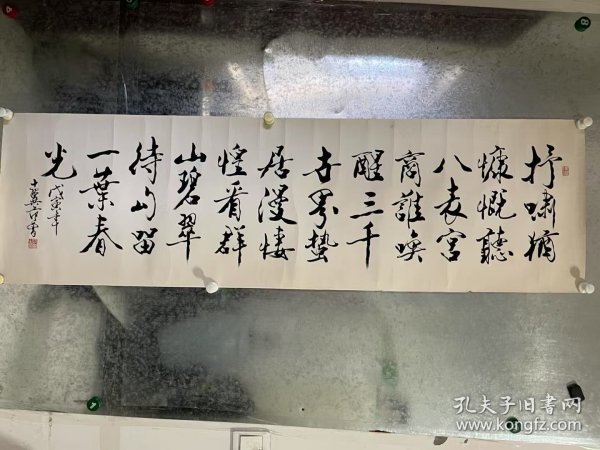 抒啸犹
慷慨聽
八表宫
商誰喚
醒三千
古界蟄
居漫悽
惶看群
山碧翠
待與留
一葉春
光
戊寅年
孔夫子旧书网
www.kongfz.com